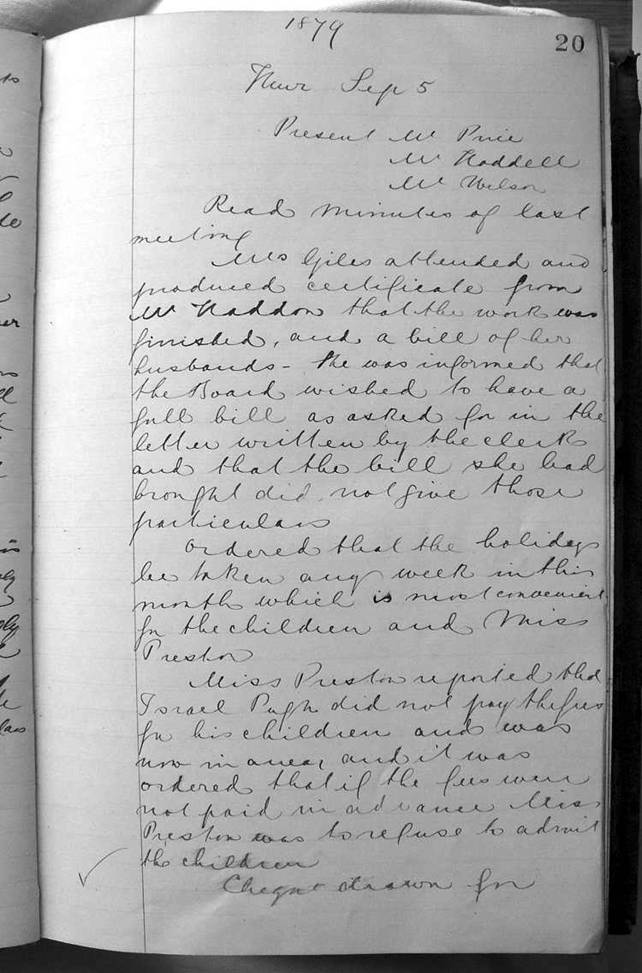 1879
20
Thur Sep 5
Present Mr Price
Mr Haddell
Mr Wilson
Read minutes of last
meeting
Mrs Giles attended and
produced certificate from
Mr Haddon that the work was
finished, and a bill of her
husbands - She was informed that
the Board wished to have a
full bill as asked for in the
letter written by the clerk
and that the bill she had
brought did not give those
particulars
Ordered that the holidays
be taken any week in this
month which is most convenient
for the children and Miss
Preston
Miss Preston reported that
Israel Pugh did not pay the fees
for his children and was
now in arrear, and it was
ordered that if the fees were
not paid in advance Miss
Preston was to refuse to admit
the children
Cheque drawn for